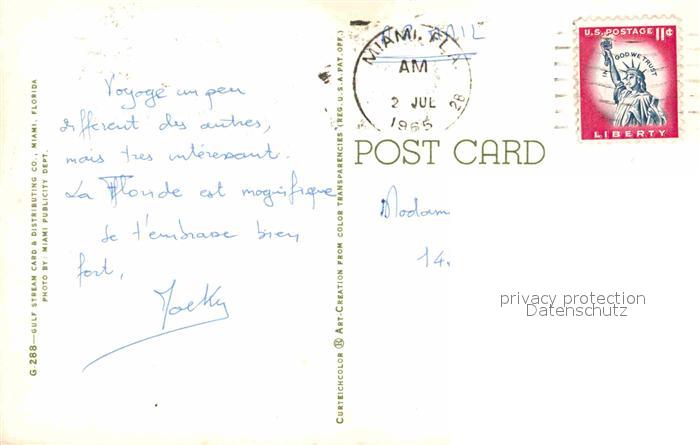 Voyage un peu
different des autres,
mais tres intéressant.
La Floride est magnifique
Je t'embrasse bien
fort,
G.288—GULF STREAM CARD & DISTRIBUTING CO., MIAMI, FLORIDA
PHOTO BY: MIAMI PUBLICITY DEPT.
CURTEICHCOLOR ® ART-CREATION FROM COLOR TRANSPARENCIES (REG. U.S.A. PAT. OFF.)
AIR MAIL
MIAMI, FLA.
AM
2 JUL
1965
28
U.S. POSTAGE 11¢
IN GOD WE TRUST
LIBERTY
POST CARD
Madam
14.
privacy protection
Datenschutz